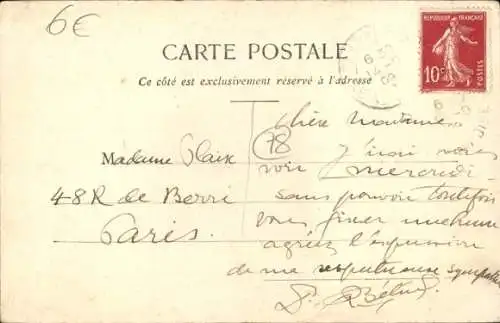 6€
CARTE POSTALE
Ce côté est exclusivement réservé à l'adresse
RÉPUBLIQUE FRANÇAISE
10c
POSTES
78
Chère Madame
J'irai vous
voir mercredi
sans pouvoir toutefois
vous fixer une heure
agréez l'expression
de ma respectueuse sympathie
Madame Plaix
48 R de Berri
Paris.